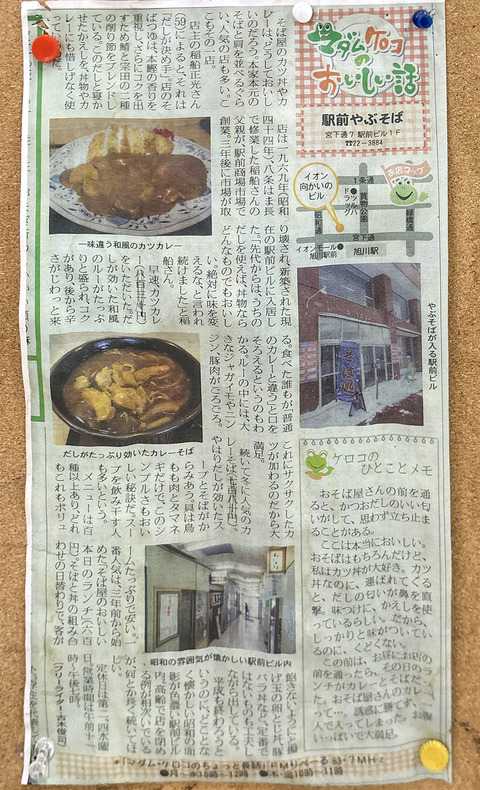 マダムケロコの
おいしい話
駅前やぶそば
宮下通7 駅前ビル1F
☎22-3884
お店マップ
イオン
向かいの
ビル
1条通
昭和通
緑橋通
買物公園
ドラッグ
ツルハ
宮下通
イオンモール
旭川駅前
旭川駅
そば屋のカツ丼やカ
レーは、どうしておいし
いのだろう。本家本元の
そばと肩を並べるぐら
い、人気の店も多い。こ
こもその一店。
店主の稲船正光さん
(59)によると、それは
「だしが決め手」。店のそ
ばつゆは、本鰹の香りを
重視し、さらにコクを出
すため鯖と宗田の二種
の削り節をブレンドし
ている。このだしと寝か
せたかえしを、丼物やカ
レーにも惜しげなく使
店は一九六九年(昭和
四十四年)、八条はま長
で修業した稲船さんの
父親が、駅前商場市場で
創業。三年後に市場が取
り壊され、新築された現
在の駅前ビルに入居し
た。「先代からは、うちの
だしを使えば、丼物なら
どんなものでもおいし
い。絶対に味を変
えるな、と言われ
続けました」と稲
船さん。
早速、カツカレ
ー(八百三十円)
をいただいた。だ
しが効いた和風
のルーがたっぷ
りと盛られ、コク
があり、後から辛
さがじわっと来
る。食べた誰もが「普通
のカレーと違う」と口を
そろえるというのもわ
かる。ルーの中には、大
きなジャガイモやニン
ジン、豚肉がごろごろ。
これにサクサクしたカ
ツが加わるのだから大
満足。
続いて冬に人気のカ
レーそば(七百八十円)。
やはりだしが効いたス
ープとそばがか
らみあう。具は鳥
もも肉とタマネ
ギだけで、このシ
ンプルさもおい
しい秘訣だ。スー
プを飲み干す人
も多いという。
メニューは百
種以上あり、どれ
もこれもボリュ
ームたっぷりで安い。一
番人気は、三年前から始
めた「そば屋のおいしい
本日のランチ」(六百
円)。そばと丼の組み合
わせの日替わりで、客が
飽きないようにと、揚
げ玉の卵とじ丼、豚
バラ丼など、定番で
はないものも工夫し
ながら出している。
平成も終わろうと
いうのに、どことな
く懐かしい昭和の面
影が色濃い駅前ビル
内。高齢で店を閉め
る例が相次いでいる
が、何とか長く続いてほ
しい。
定休日は第二・四水曜
日。営業時間は午前十一
時〜午後七時。
(フリーライター・吉木俊司)
一味違う和風のカツカレー
だしがたっぷり効いたカレーそば
やぶそばが入る駅前ビル
昭和の雰囲気が懐かしい駅前ビル内
ケロコの
ひとことメモ
おそば屋さんの前を通
ると、かつおだしのいい匂
いがして、思わず立ち止ま
ることがある。
ここは本当においしい。
おそばはもちろんだけど、
私はカツ丼が大好き。カツ
丼なのに、運ばれてくる
と、だしの匂いが鼻を直
撃。味つけに、かえしを使
っているらしい。だから、
しっかりと味がついてい
るのに、くどくない。
この前は、お昼にお店の
前を通ったら、その日のラ
ンチがカレーとそばだっ
た。おそば屋さんのカレ
ーって…。誘惑に勝てず、
入って入ってしまった。お腹
いっぱいで大満足。
「マダム・ケロコのちょっと長話」FMりべーる 83・7MHz